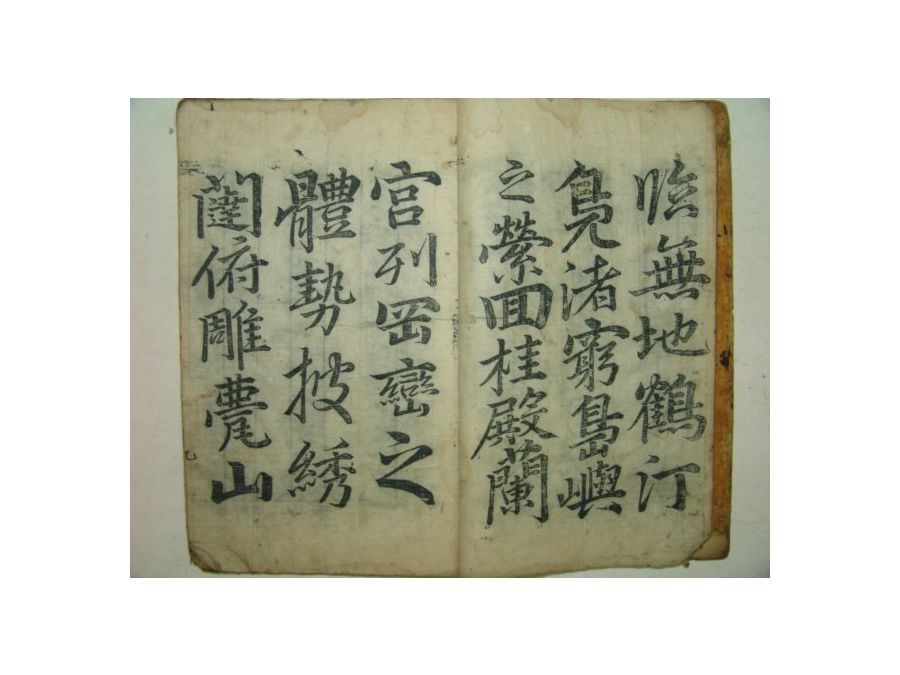 臨無地鶴汀
鳧渚窮島嶼
之縈回桂殿蘭
宮列岡巒之
體勢披綉
闥俯雕甍山